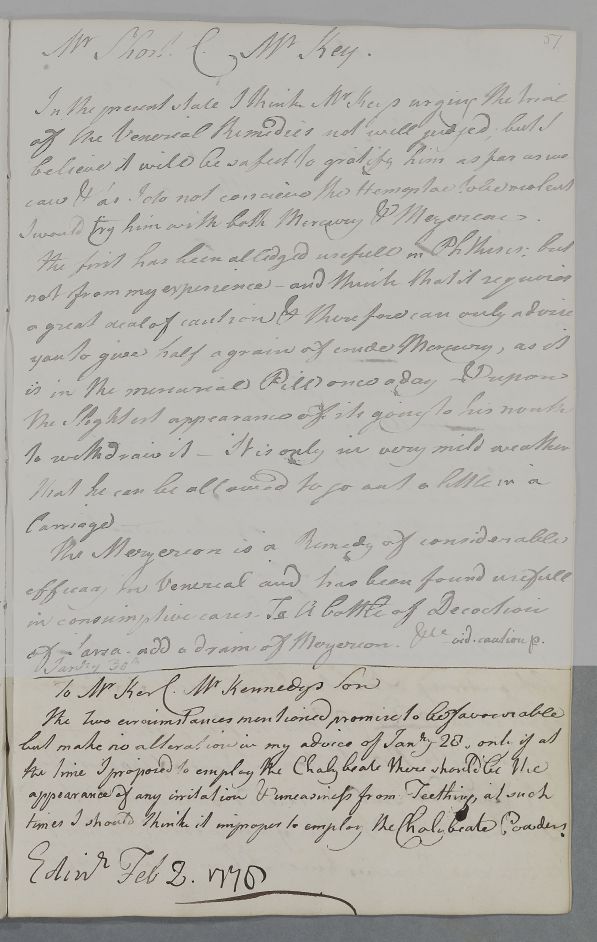 57
Mr Short C. Mr Key.
In the present state I think Mr Keys urging the trial
of the Venereal Remedies not well judged, but I
believe it will be safest to gratify him as far as we
can & as I do not conceive the Hemoptoe to be violent
I would try him with both Mercury & Mezereon.
The first has been alledged usefull in Phthisis; but
not from my experience - and think that it requires
a great deal of caution & therefore can only advise
you to give half a grain of crude Mercury, as it
is in the mercurial Pill once a day & upon
the slightest appearance of its going to his mouth
to withdraw it - It is only in very mild weather
that he can be allowed to go out a little in a
Carriage
The Mezereon is a Remedy of considerable
efficacy in Venereal and has been found usefull
in consumptive cases. To A bottle of Decoction
of Sarsa. add a dram of Mezereon. vid. caution p.
Janry 30th
To Mr Ker C. Mr Kennedys Son
The two circumstances mentioned promise to be favourable
but make no alteration in my advice of Janry 28, only if at
the time I proposed to employ the Chalybeate there should be the
appearance of any irritation & uneasiness from Teething, at such
times I should think it improper to employ the Chalybeate Powders.
Edinr Feb 2. 1776